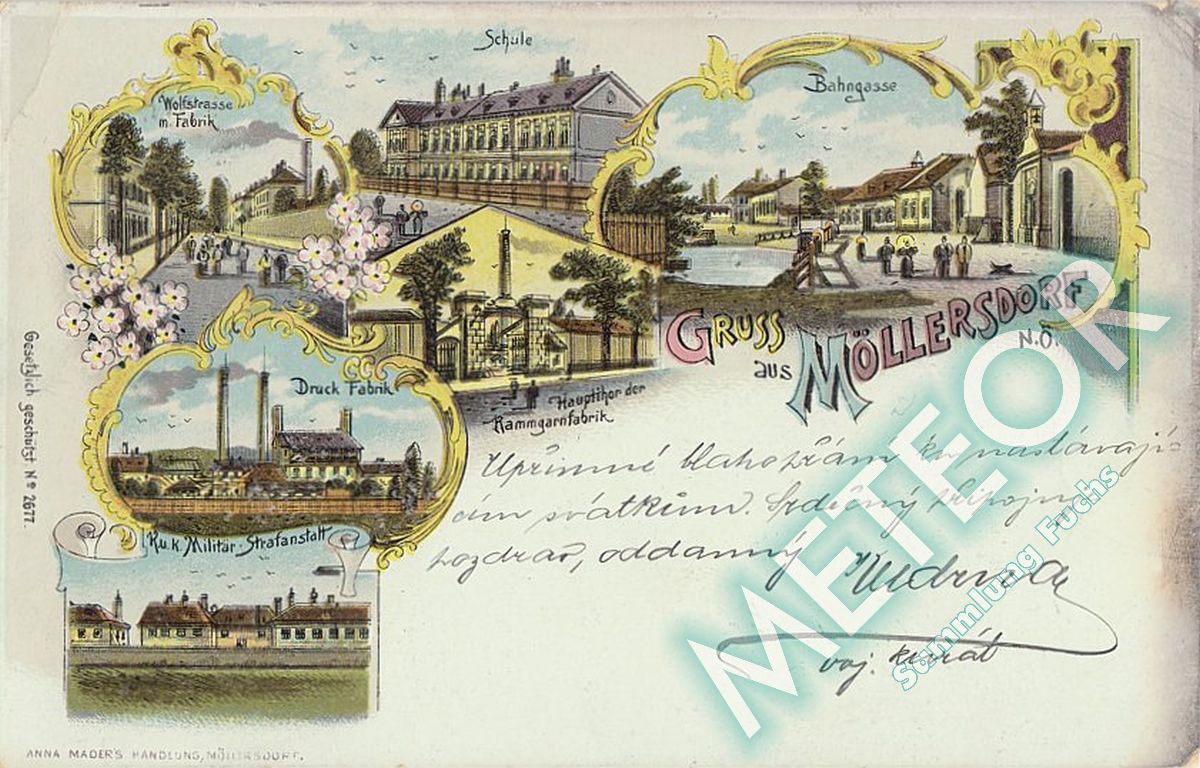 Schule
Wolfstrasse
m. Fabrik
Bahngasse
GRUSS
aus MÖLLERSDORF
N.Ö.
Hauptthor der
Kammgarnfabrik
Druck Fabrik
K.u.k. Militär-Strafanstalt
Gesetzlich geschützt Nº 2677.
Upřimné blahopřání ku nastávají-
cím svátkům. Srdečný připojuje
pozdrav, oddanný
voj. kurát
ANNA MADER'S HANDLUNG, MÖLLERSDORF.
METEOR
Sammlung Fuchs